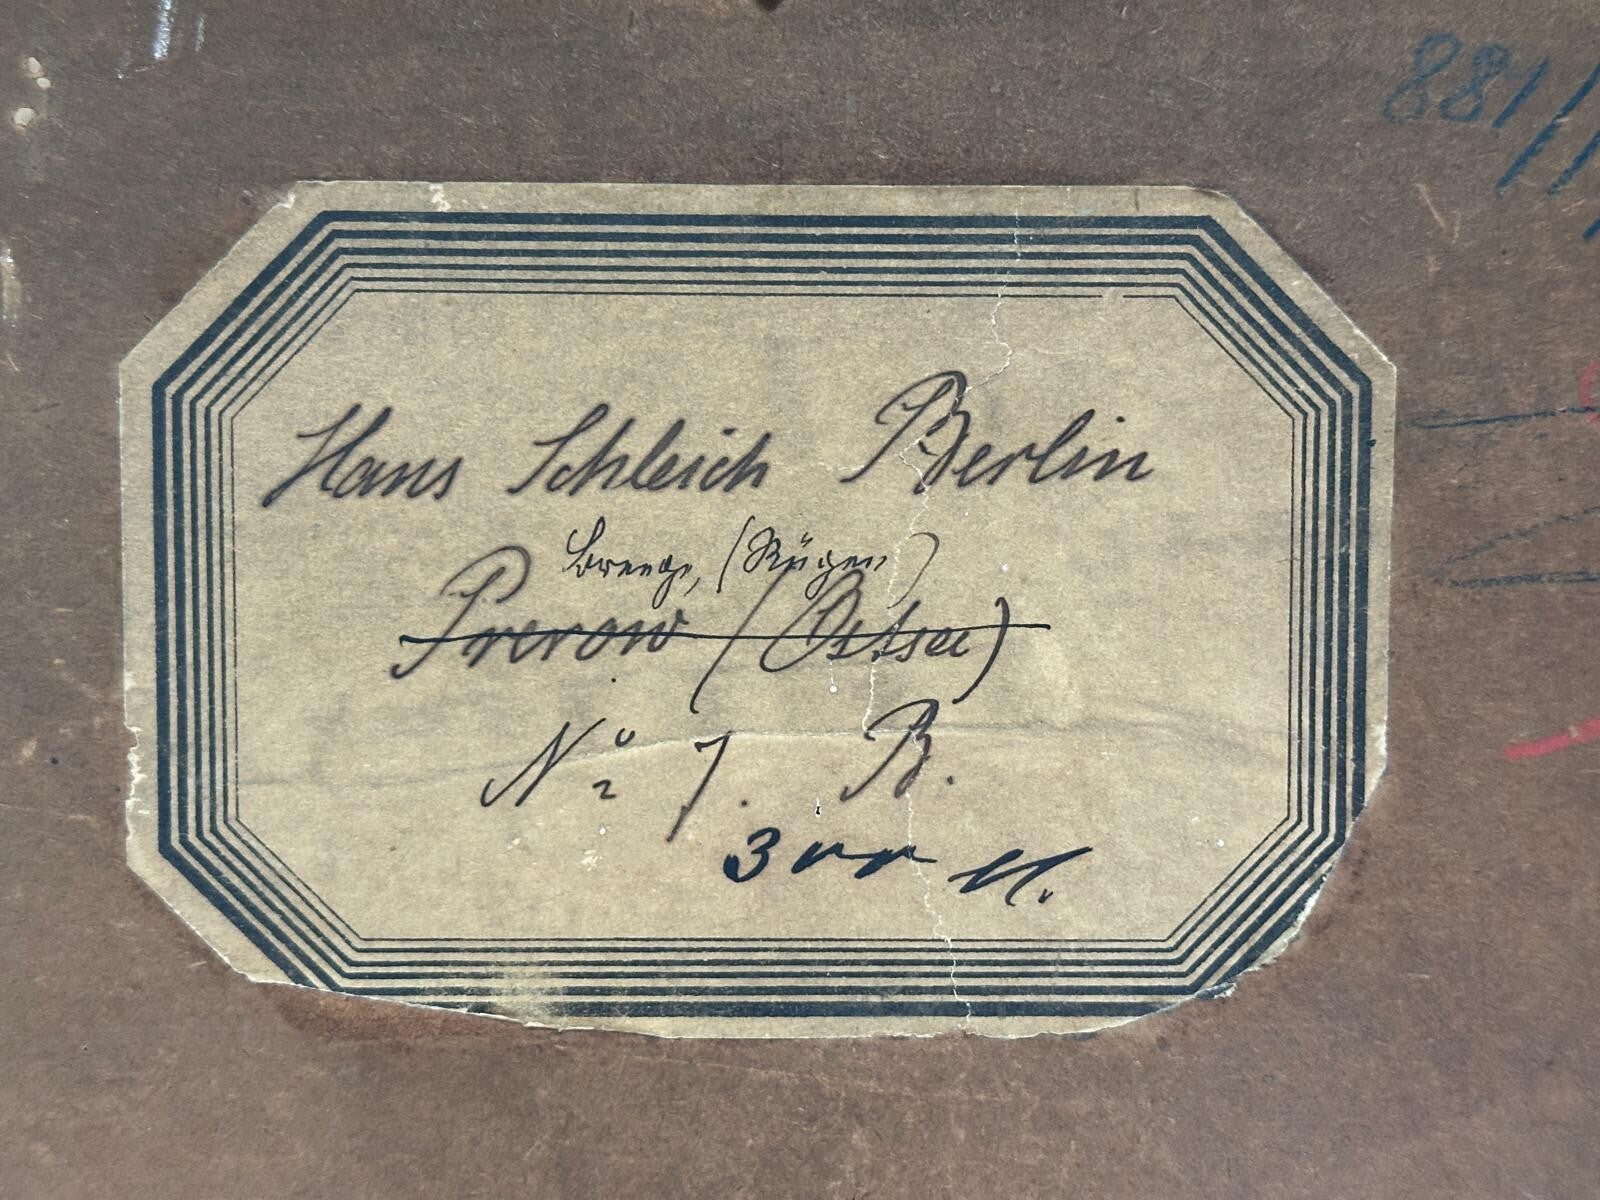 881//
Hans Schleich Berlin
Breege, (Rügen)
Prerow (Ostsee)
No 7. B.
300 M.